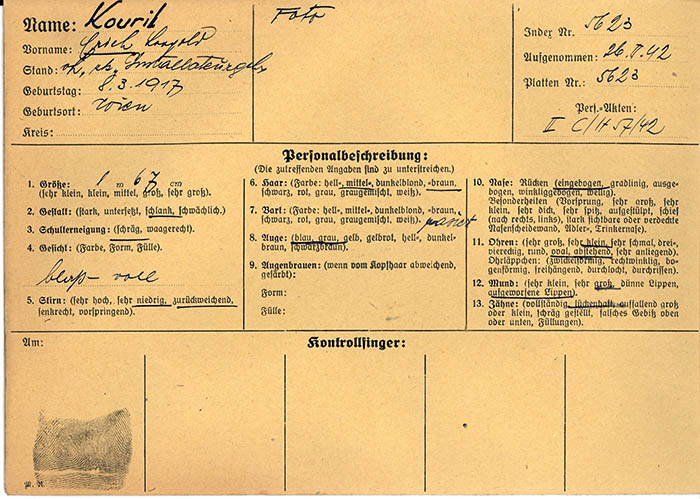 Name: Kouril
Foto
Index Nr. 5623
Vorname: Erich Leopold
Aufgenommen: 26.V.42
Stand:
Platten Nr.: 5623
Geburtstag: 8.3.1917
Geburtsort: Wien
Pers.-Akten:
Kreis:
II C/H 57/42
Personalbeschreibung:
(Die zutreffenden Angaben sind zu unterstreichen).
1. Größe: 1 m 67 cm
(sehr klein, klein, mittel, groß, sehr groß).
2. Gestalt: (stark, untersetzt, schlank, schwächlich.)
3. Schulterneigung: (schräg, waagerecht.)
4. Gesicht: (Farbe, Form, Fülle).
blaß - voll
5. Stirn: (sehr hoch, sehr niedrig, zurückweichend,
senkrecht, vorspringend).
6. Haar: (Farbe: hell-, mittel-, dunkelblond, -braun,
schwarz, rot, grau, graugemischt, weiß).
7. Bart: (Farbe: hell-, mittel-, dunkelblond, -braun,
schwarz, rot, grau, graugemischt, weiß). rasiert
8. Auge: (blau, grau, gelb, gelbrot, hell-, dunkel-
braun, schwarzbraun).
9. Augenbrauen: (wenn vom Kopfhaar abweichend,
gefärbt):
Form:
Fülle:
10. Nase: Rücken (eingebogen, gradlinig, ausge-
bogen, winkliggebogen, wellig).
Besonderheiten (Vorsprung, sehr groß, sehr
klein, sehr dick, sehr spitz, aufgestülpt, schief
(nach rechts, links), stark sichtbare oder verdeckte
Nasenscheidewand, Adler-, Trinkernase).
11. Ohren: (sehr groß, sehr klein, sehr schmal, drei-,
viereckig, rund, oval, abstehend, sehr anliegend).
Ohrläppchen: (zwickelförmig, rechtwinklig, bo-
genförmig, freihängend, durchlocht, durchrissen).
12. Mund: (sehr klein, sehr groß, dünne Lippen,
aufgeworfene Lippen).
13. Zähne: (vollständig, lückenhaft, auffallend groß
oder klein, schräg gestellt, falsches Gebiß oben
oder unten, Füllungen).
Am:
Kontrollfinger: